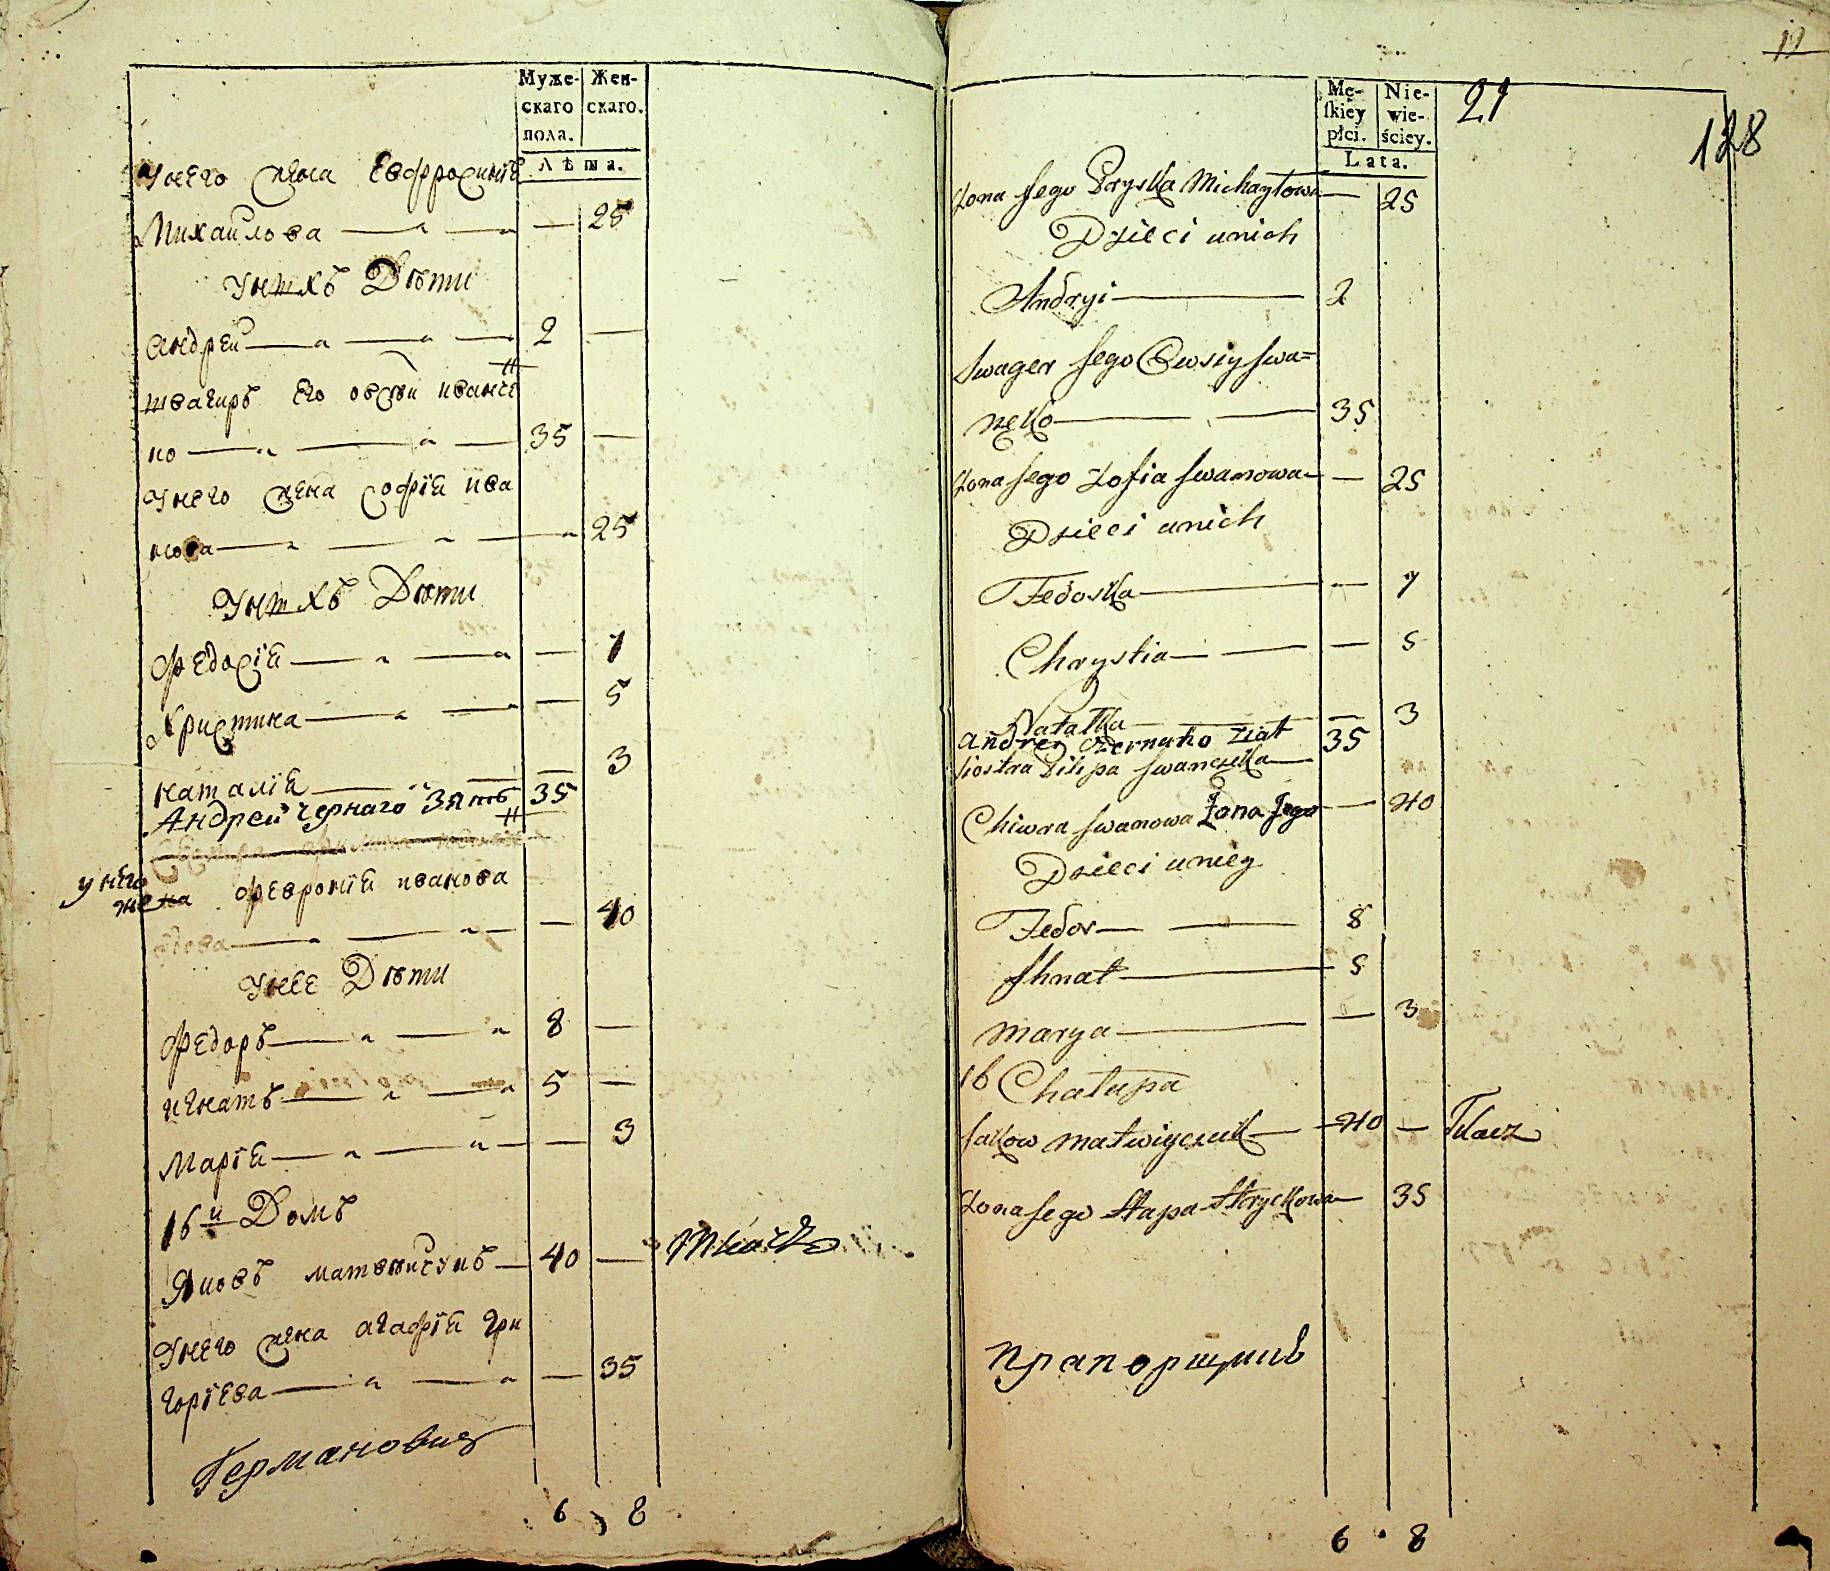 Муже- Жен-
скаго скаго.
пола.
Лѣта.
У него жена Евфросинїѣ
Михайлова — — — 25
У нихъ Дѣти
Андрей — — — 2 —
швагиръ его овсѣи иванч
ко — — — 35 —
У него жена софїѣ ива
нова — — — 25
У нихъ Дѣти
Федосїѣ — — — 7
Христина — — — 5
Наталїѣ — — — 3
Андрей Чернаго Зять 35
у него
жена Февронїѣ иванова
— — — 40
У нее Дѣти
Федоръ — — 8 —
игнатъ — — 5 —
Марїѣ — — — 3
16й Домъ
Яковъ матвѣйчукъ — 40 — Ткачъ
У него жена агафїѣ гри
горїева — — — 35
Германовичъ
6 8
19
Mę- Nie-
skiey wie-
płci. ściey.
Lata.
21
128
Żona Jego Pryska Michayłowa — 25
Dzieci u nich
Andryi — 2
Szwager Jego Owsiy Iwa=
neko — 35
Żona Jego Zofia Iwanowa — 25
Dzieci u nich
Fedoska — — 7
Chrystia — — 5
Natalka — — 3
Andrey Czernaho Ziat 35
siostra Filipa Iwaneyka —
Chiwra Iwanowa Żona Jego — 40
Dzieci u niey
Fedor — — 8
Ihnat — 5
Marya — — 3
16 Chałupa
Jakow Matwiyczuk — 40 — Tkacz
Żona Jego Hapa Hryckowa — 35
прапорщикъ
6 8